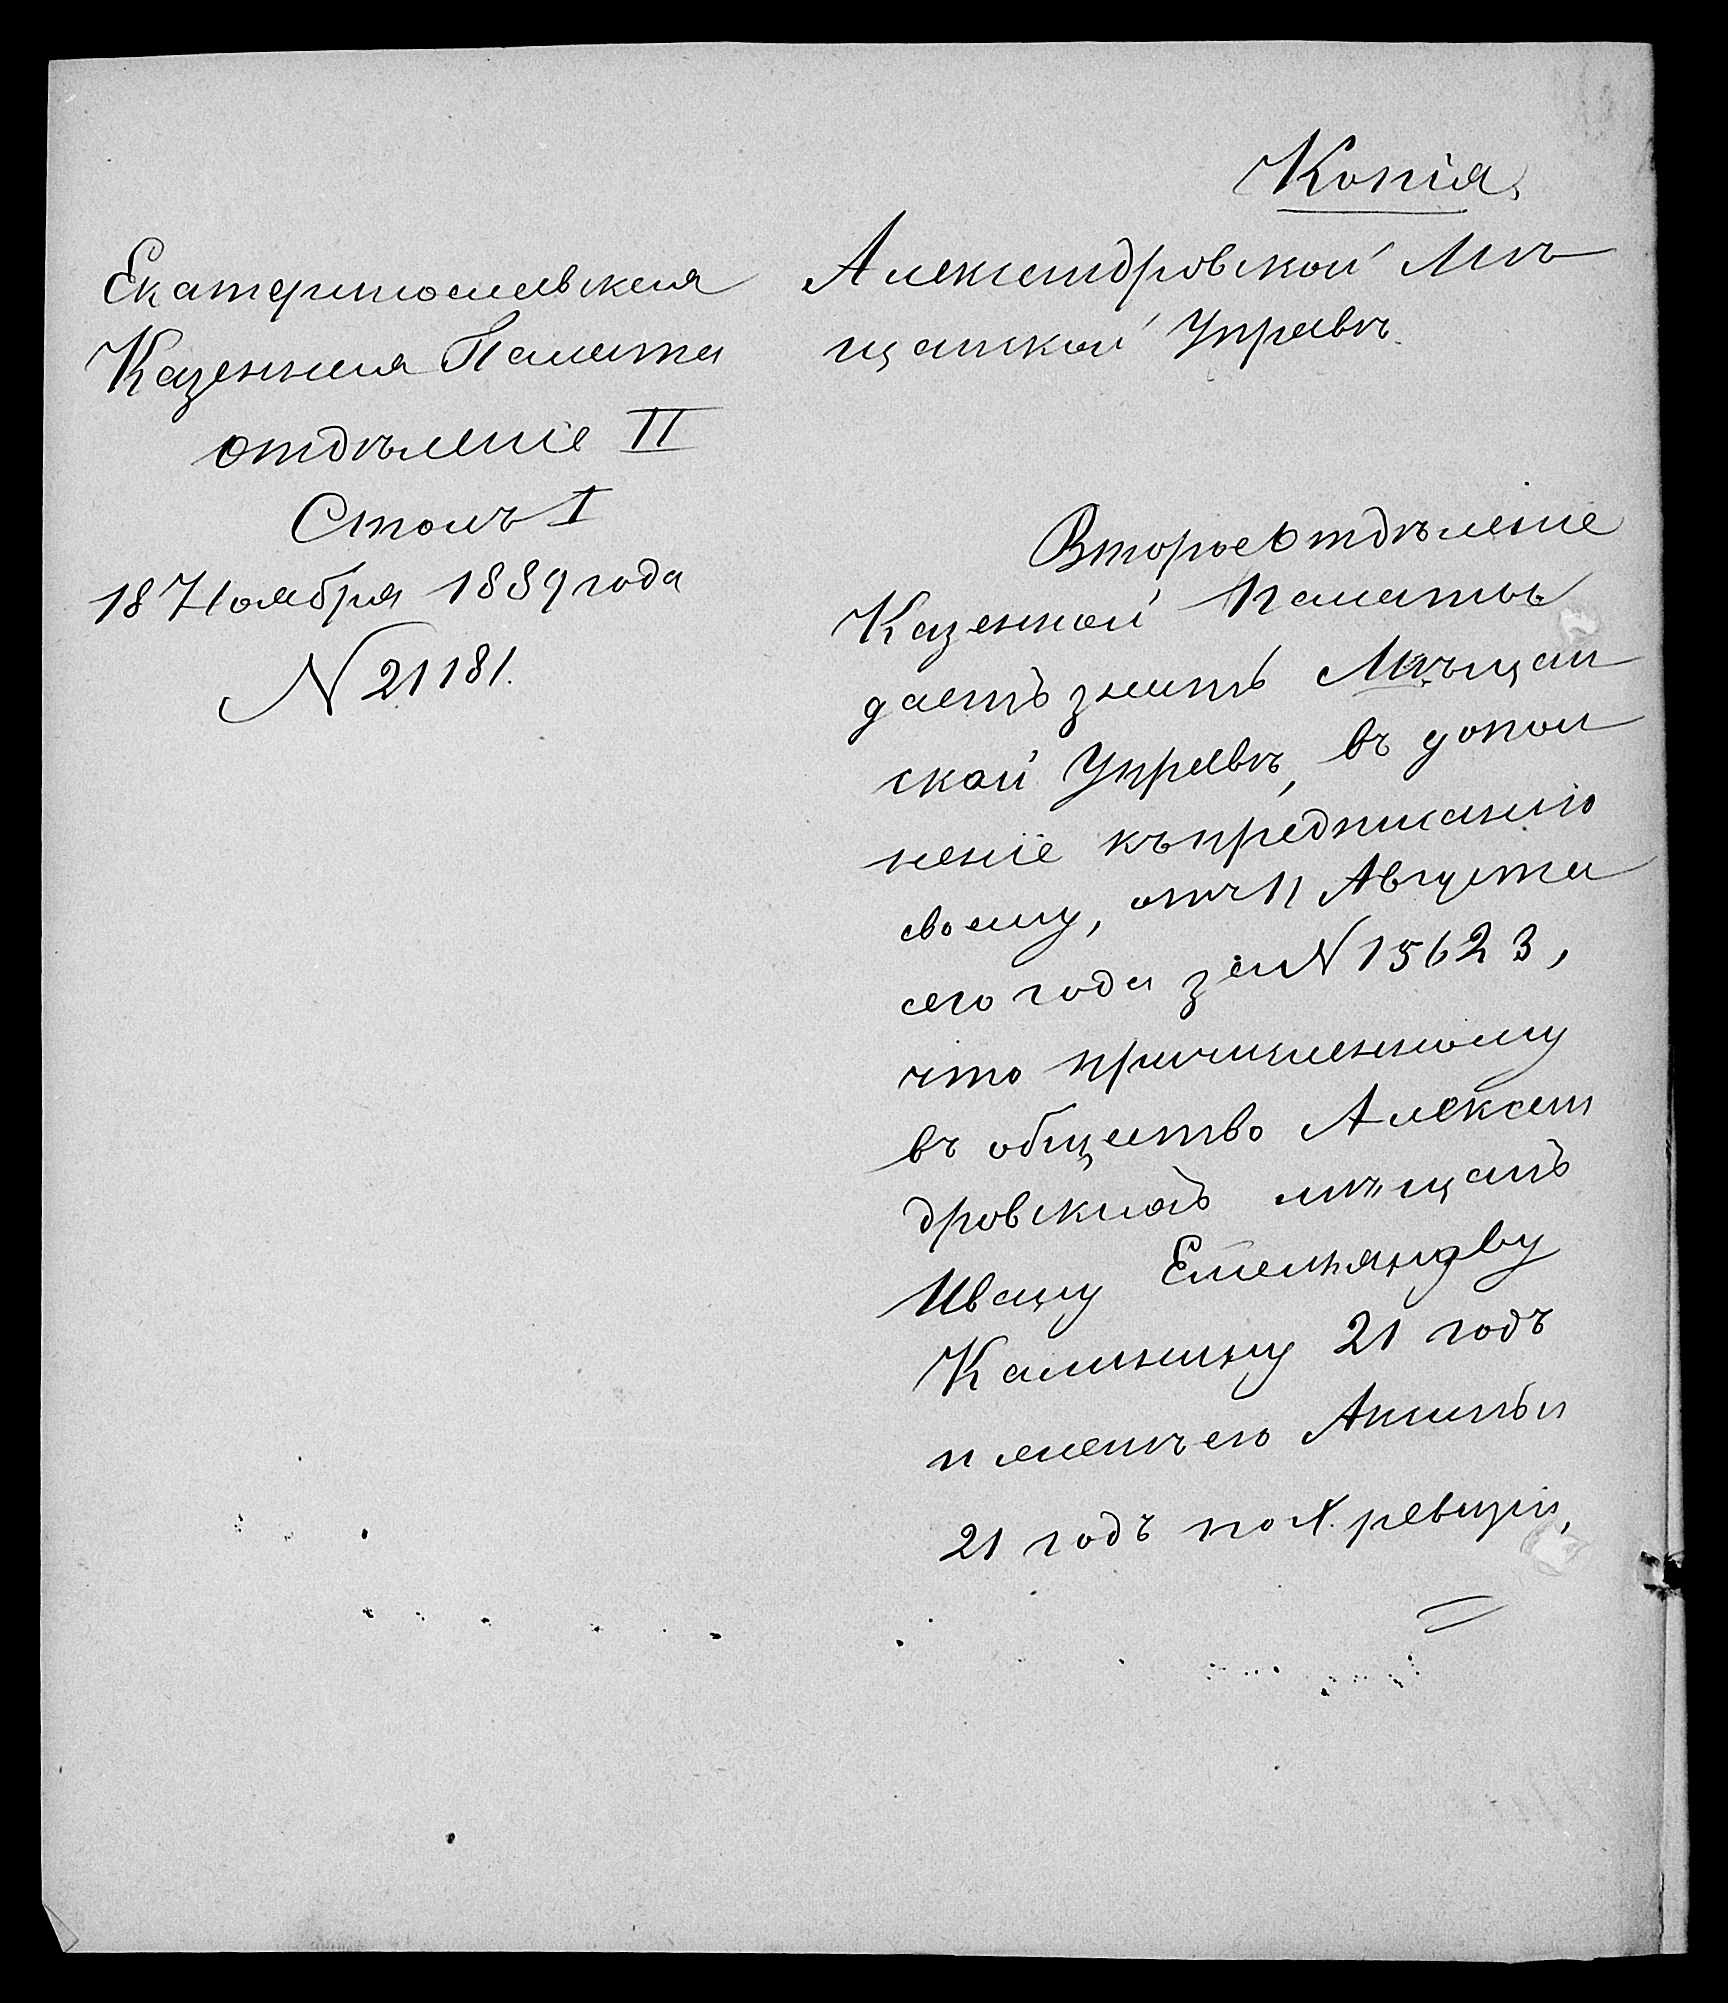 Копія,
Екатеринославская
Казенная Палата
отдѣленіе II
Столъ I
18 Ноября 1889 года
N 21181.
Александровской Мѣ
щанской Управѣ.
Второе Отдѣленіе
Казенной Палаты
даетъ знать Мѣщан
ской Управѣ, въ допол
неніе къ предписанію
своему, отъ 11 Августа
сего года за N 15623,
что причисленному
въ общество Алексан
дровскихъ мѣщанъ
Ивану Емельянову
Калинину 21 годъ
и женѣ его
21 годъ по X ревизіи,